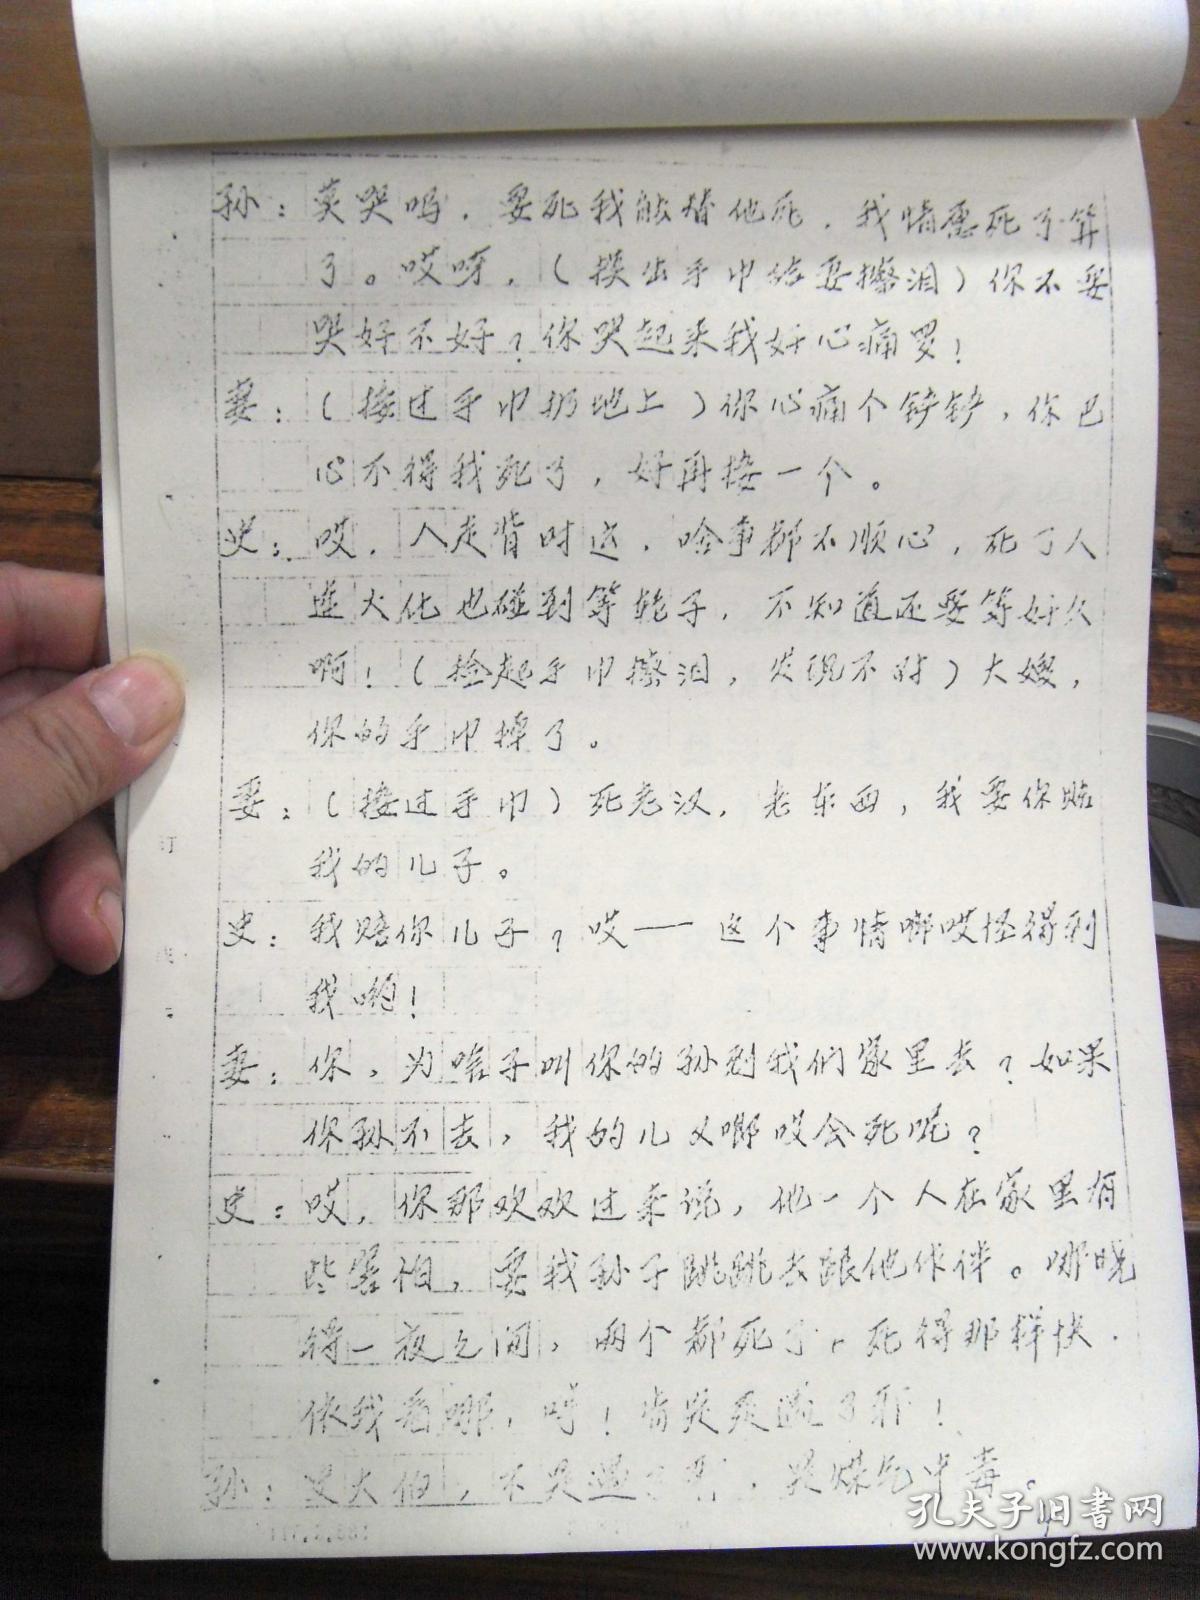 孙：莫哭吗，要死我能替他死，我情愿死了算
了。哎呀，（摸出手巾给妻擦泪）你不要
哭好不好？你哭起来我好心痛罗！
妻：（接过手巾扔地上）你心痛个铲铲，你巴
心不得我死了，好再接一个。
史：哎，人走背时运，啥事都不顺心，死了人
连火化也碰到等轮子，不知道还要等好久
啊！（捡起手巾擦泪，发现不对）大嫂，
你的手巾掉了。
妻：（接过手巾）死老汉，老东西，我要你赔
我的儿子。
史：我赔你儿子？哎——这个事情啷哎怪得到
我哟！
妻：你，为啥子叫你的孙到我们家里去？如果
你孙不去，我的儿又啷哎会死呢？
史：哎，你那欢欢过来说，他一个人在家里有
些害怕，要我孙子跳跳去跟他作伴。哪晓
得一夜之间，两个都死了，死得那样快，
依我看哪，哼！肯定是遇了邪！
孙：史大伯，不是遇了邪，是煤气中毒。
订
线
孔夫子旧书网
www.kongfz.com